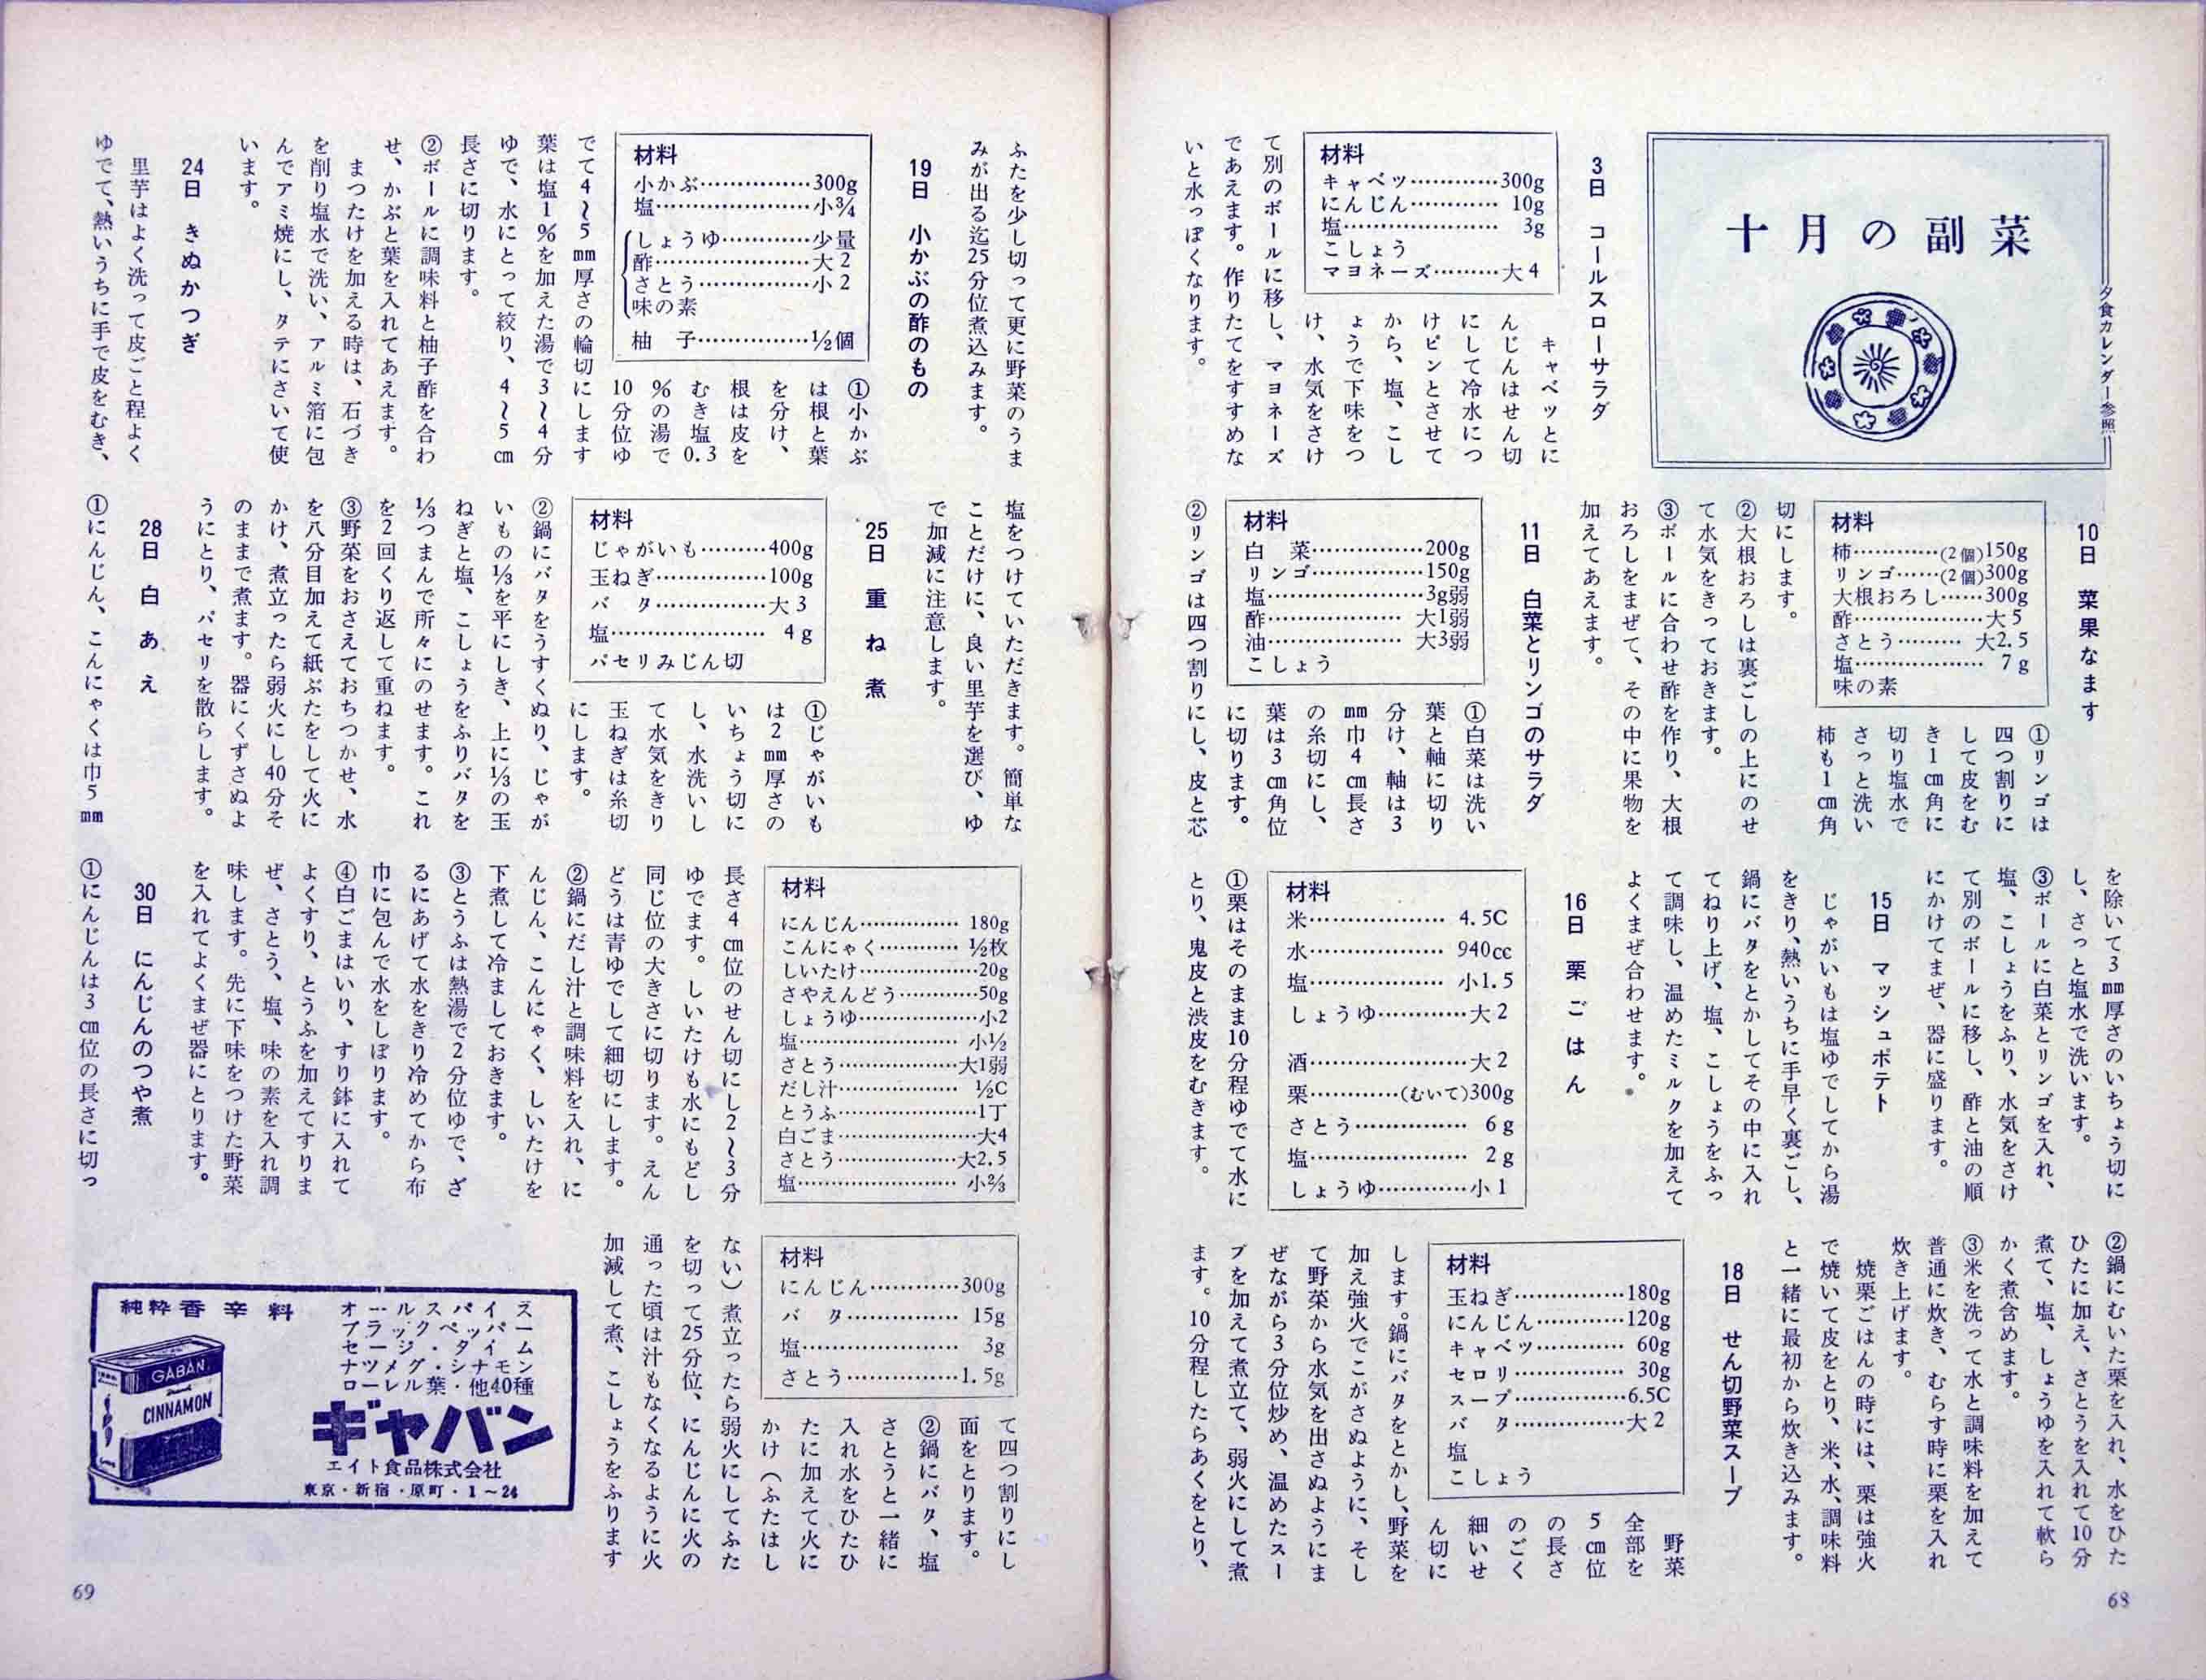 十月の副菜
夕食カレンダー参照
3日　コールスローサラダ
材料
キャベツ…………300g
にんじん………… 10g
塩………………… 3g
こしょう
マヨネーズ………大4
キャベツとに
んじんはせん切
にして冷水につ
けピンとさせて
から、塩、こし
ょうで下味をつ
け、水気をさけ
て別のボールに移し、マヨネーズ
であえます。作りたてをすすめな
いと水っぽくなります。
10日　菜果なます
材料
柿…………(2個)150g
リンゴ……(2個)300g
大根おろし……300g
酢………………大5
さとう……… 大2.5
塩……………… 7g
味の素
①リンゴは
四つ割りに
して皮をむ
き1cm角に
切り塩水で
さっと洗い
柿も1cm角
切にします。
②大根おろしは裏ごしの上にのせ
て水気をきっておきます。
③ボールに合わせ酢を作り、大根
おろしをまぜて、その中に果物を
加えてあえます。
11日　白菜とリンゴのサラダ
材料
白　菜……………200g
リンゴ……………150g
塩…………………3g弱
酢……………… 大1弱
油……………… 大3弱
こしょう
①白菜は洗い
葉と軸に切り
分け、軸は3
mm巾4cm長さ
の糸切にし、
葉は3cm角位
に切ります。
②リンゴは四つ割りにし、皮と芯
を除いて3mm厚さのいちょう切に
し、さっと塩水で洗います。
③ボールに白菜とリンゴを入れ、
塩、こしょうをふり、水気をさけ
て別のボールに移し、酢と油の順
にかけてまぜ、器に盛ります。
15日　マッシュポテト
じゃがいもは塩ゆでしてから湯
をきり、熱いうちに手早く裏ごし、
鍋にバタをとかしてその中に入れ
てねり上げ、塩、こしょうをふっ
て調味し、温めたミルクを加えて
よくまぜ合わせます。
16日　栗ごはん
材料
米……………… 4.5C
水……………… 940cc
塩……………… 小1.5
しょうゆ…………大2
酒…………………大2
栗…………(むいて)300g
さとう…………… 6g
塩………………… 2g
しょうゆ…………小1
①栗はそのまま10分程ゆでて水に
とり、鬼皮と渋皮をむきます。
②鍋にむいた栗を入れ、水をひた
ひたに加え、さとうを入れて10分
煮て、塩、しょうゆを入れて軟ら
かく煮含めます。
③米を洗って水と調味料を加えて
普通に炊き、むらす時に栗を入れ
炊き上げます。
焼栗ごはんの時には、栗は強火
で焼いて皮をとり、米、水、調味料
と一緒に最初から炊き込みます。
18日　せん切野菜スープ
材料
玉ねぎ……………180g
にんじん…………120g
キャベツ………… 60g
セロリ…………… 30g
スープ……………6.5C
バ　タ……………大2
塩
こしょう
野菜
全部を
5cm位
の長さ
のごく
細いせ
ん切に
します。鍋にバタをとかし、野菜を
加え強火でこがさぬように、そし
て野菜から水気を出さぬようにま
ぜながら3分位炒め、温めたスー
プを加えて煮立て、弱火にして煮
ます。10分程したらあくをとり、
68
ふたを少し切って更に野菜のうま
みが出る迄25分位煮込みます。
19日　小かぶの酢のもの
材料
小かぶ……………300g
塩…………………小¾
しょうゆ…………少量
酢…………………大2
さとう……………小2
味の素
柚　子……………½個
①小かぶ
は根と葉
を分け、
根は皮を
むき塩0.3
%の湯で
10分位ゆ
でて4〜5mm厚さの輪切にします
葉は塩1%を加えた湯で3〜4分
ゆで、水にとって絞り、4〜5cm
長さに切ります。
②ボールに調味料と柚子酢を合わ
せ、かぶと葉を入れてあえます。
まつたけを加える時は、石づき
を削り塩水で洗い、アルミ箔に包
んでアミ焼にし、タテにさいて使
います。
24日　きぬかつぎ
里芋はよく洗って皮ごと程よく
ゆでて、熱いうちに手で皮をむき、
塩をつけていただきます。簡単な
ことだけに、良い里芋を選び、ゆ
で加減に注意します。
25日　重ね煮
材料
じゃがいも………400g
玉ねぎ……………100g
バ　タ……………大3
塩………………… 4g
パセリみじん切
①じゃがいも
は2mm厚さの
いちょう切に
し、水洗いし
て水気をきり
玉ねぎは糸切
にします。
②鍋にバタをうすくぬり、じゃが
いもの⅓を平にしき、上に⅓の玉
ねぎと塩、こしょうをふりバタを
⅓つまんで所々にのせます。これ
を2回くり返して重ねます。
③野菜をおさえておちつかせ、水
を八分目加えて紙ぶたをして火に
かけ、煮立ったら弱火にし40分そ
のままで煮ます。器にくずさぬよ
うにとり、パセリを散らします。
28日　白あえ
①にんじん、こんにゃくは巾5mm
材料
にんじん………… 180g
こんにゃく……… ½枚
しいたけ…………20g
さやえんどう………50g
しょうゆ…………小2
塩……………… 小½
さとう……………大1弱
だし汁………… ½C
とうふ……………1丁
白ごま……………大4
さとう……………大2.5
塩……………… 小⅔
長さ4cm位のせん切にし2〜3分
ゆでます。しいたけも水にもどし
同じ位の大きさに切ります。えん
どうは青ゆでして細切にします。
②鍋にだし汁と調味料を入れ、に
んじん、こんにゃく、しいたけを
下煮して冷ましておきます。
③とうふは熱湯で2分位ゆで、ざ
るにあげて水をきり冷めてから布
巾に包んで水をしぼります。
④白ごまはいり、すり鉢に入れて
よくすり、とうふを加えてすりま
ぜ、さとう、塩、味の素を入れ調
味します。先に下味をつけた野菜
を入れてよくまぜ器にとります。
30日　にんじんのつや煮
①にんじんは3cm位の長さに切っ
材料
にんじん…………300g
バ　タ…………… 15g
塩………………… 3g
さとう……………1.5g
て四つ割りにし
面をとります。
②鍋にバタ、塩
さとうと一緒に
入れ水をひたひ
たに加えて火に
かけ（ふたはし
ない）煮立ったら弱火にしてふた
を切って25分位、にんじんに火の
通った頃は汁もなくなるように火
加減して煮、こしょうをふります
純粋香辛料
GABAN
CINNAMON
オールスパイス
ブラックペッパー
セージ・タイム
ナツメグ・シナモン
ローレル葉・他40種
ギャバン
エイト食品株式会社
東京・新宿・原町・1〜24
69